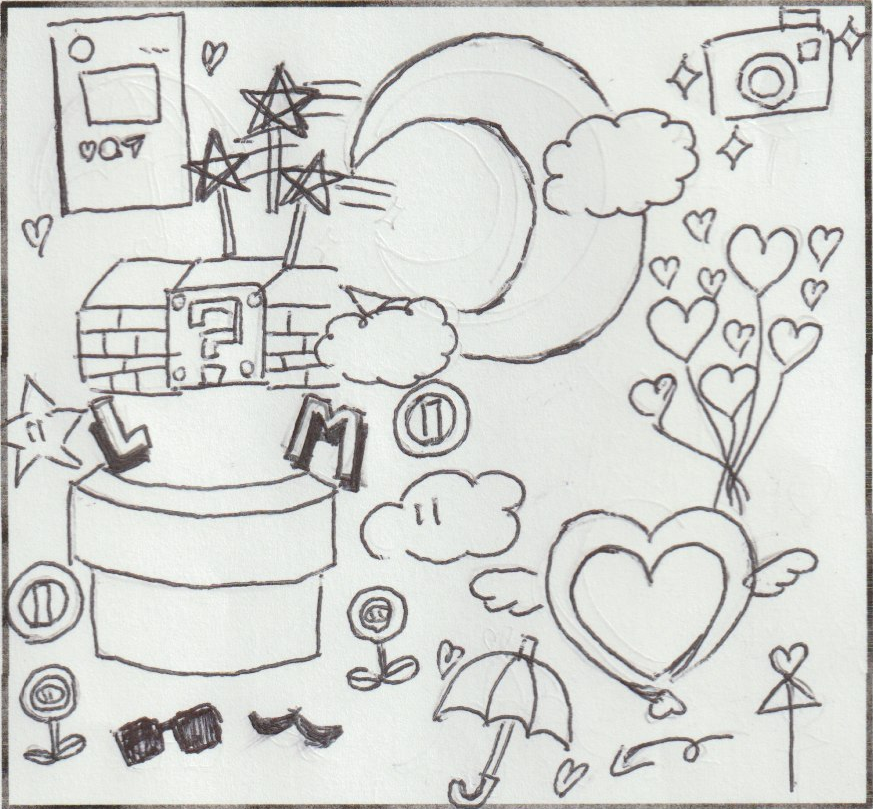 ?
L M